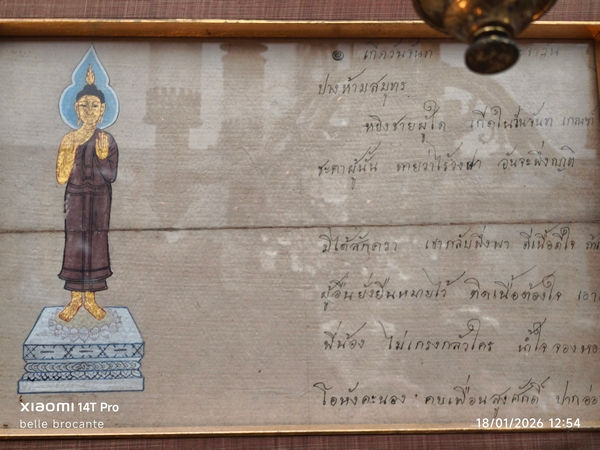 ๏ เกิดวันจันทร
ปางห้ามสมุทร
หญิงชายผู้ใด เกิดในวันจันทร เกณฑ
ชะตาผู้นั้น ทายว่าไร้วงษา อันจะพึ่งญาติ
มิได้สักครา เขากลับพึ่งพา ดีเนื้อดีใจ
ผู้อื่นยั่งยืนหมายไว้ ติดเนื้อต้องใจ เอา
พี่น้อง ไม่เกรงกลัวใคร น้ำใจจองหอ
โอหังคะนอง คบเพื่อนสูงศักดิ์ ปากอ่อ
XIAOMI 14T Pro
belle brocante
18/01/2026 12:54